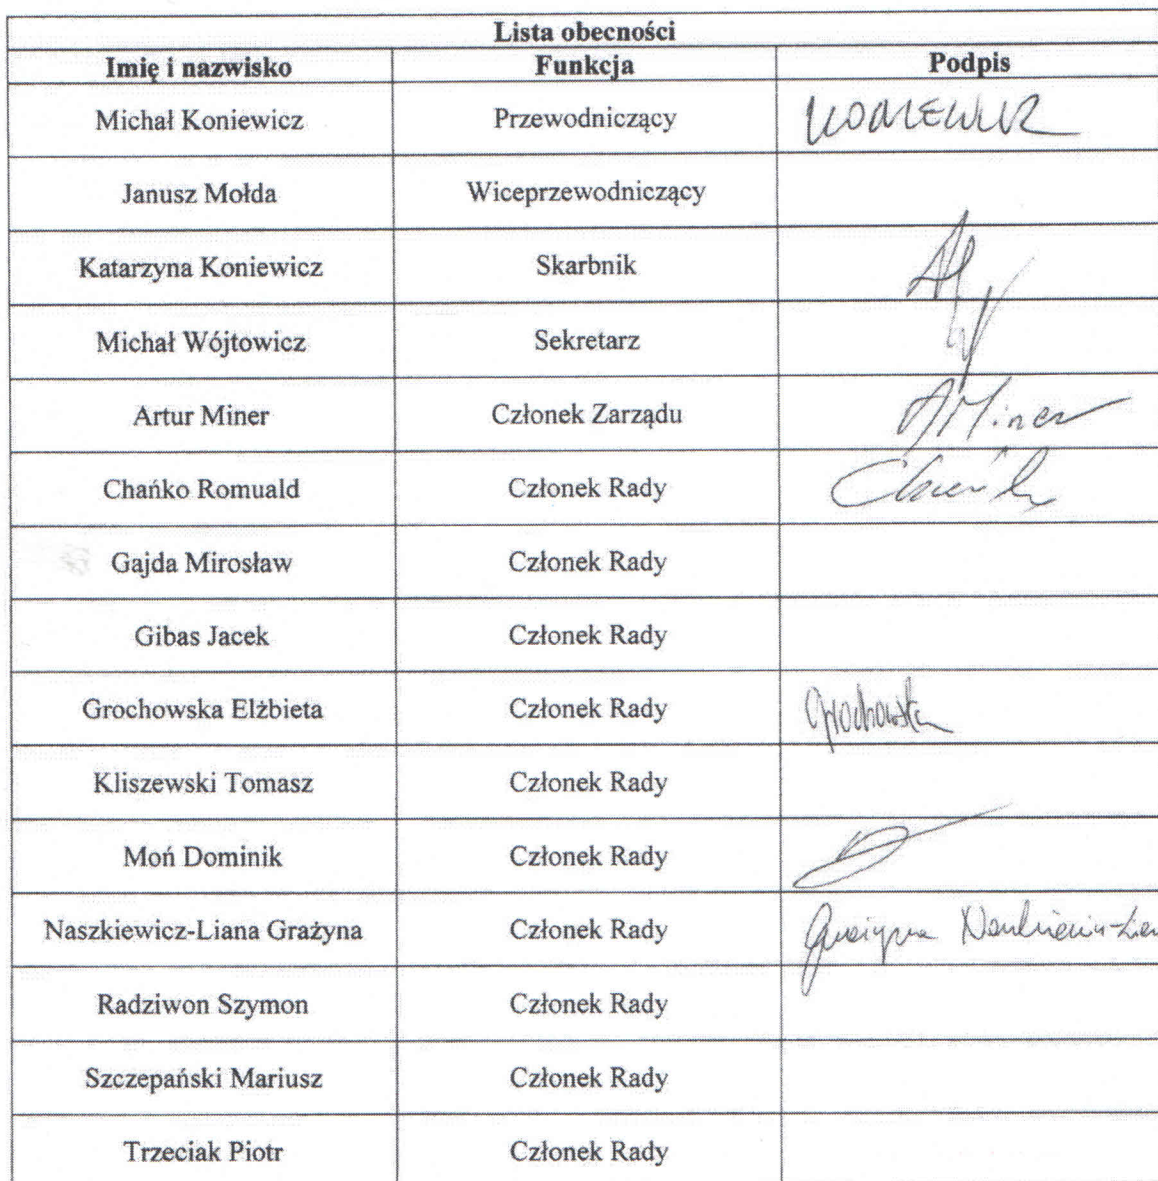 Lista obecności
Imię i nazwisko Funkcja Podpis
Michał Koniewicz Przewodniczący KONIEWICZ
Janusz Mołda Wiceprzewodniczący
Katarzyna Koniewicz Skarbnik
Michał Wójtowicz Sekretarz
Artur Miner Członek Zarządu AMiner
Chańko Romuald Członek Rady Chańko
Gajda Mirosław Członek Rady
Gibas Jacek Członek Rady
Grochowska Elżbieta Członek Rady Grochowska
Kliszewski Tomasz Członek Rady
Moń Dominik Członek Rady
Naszkiewicz-Liana Grażyna Członek Rady Grażyna
Radziwon Szymon Członek Rady
Szczepański Mariusz Członek Rady
Trzeciak Piotr Członek Rady